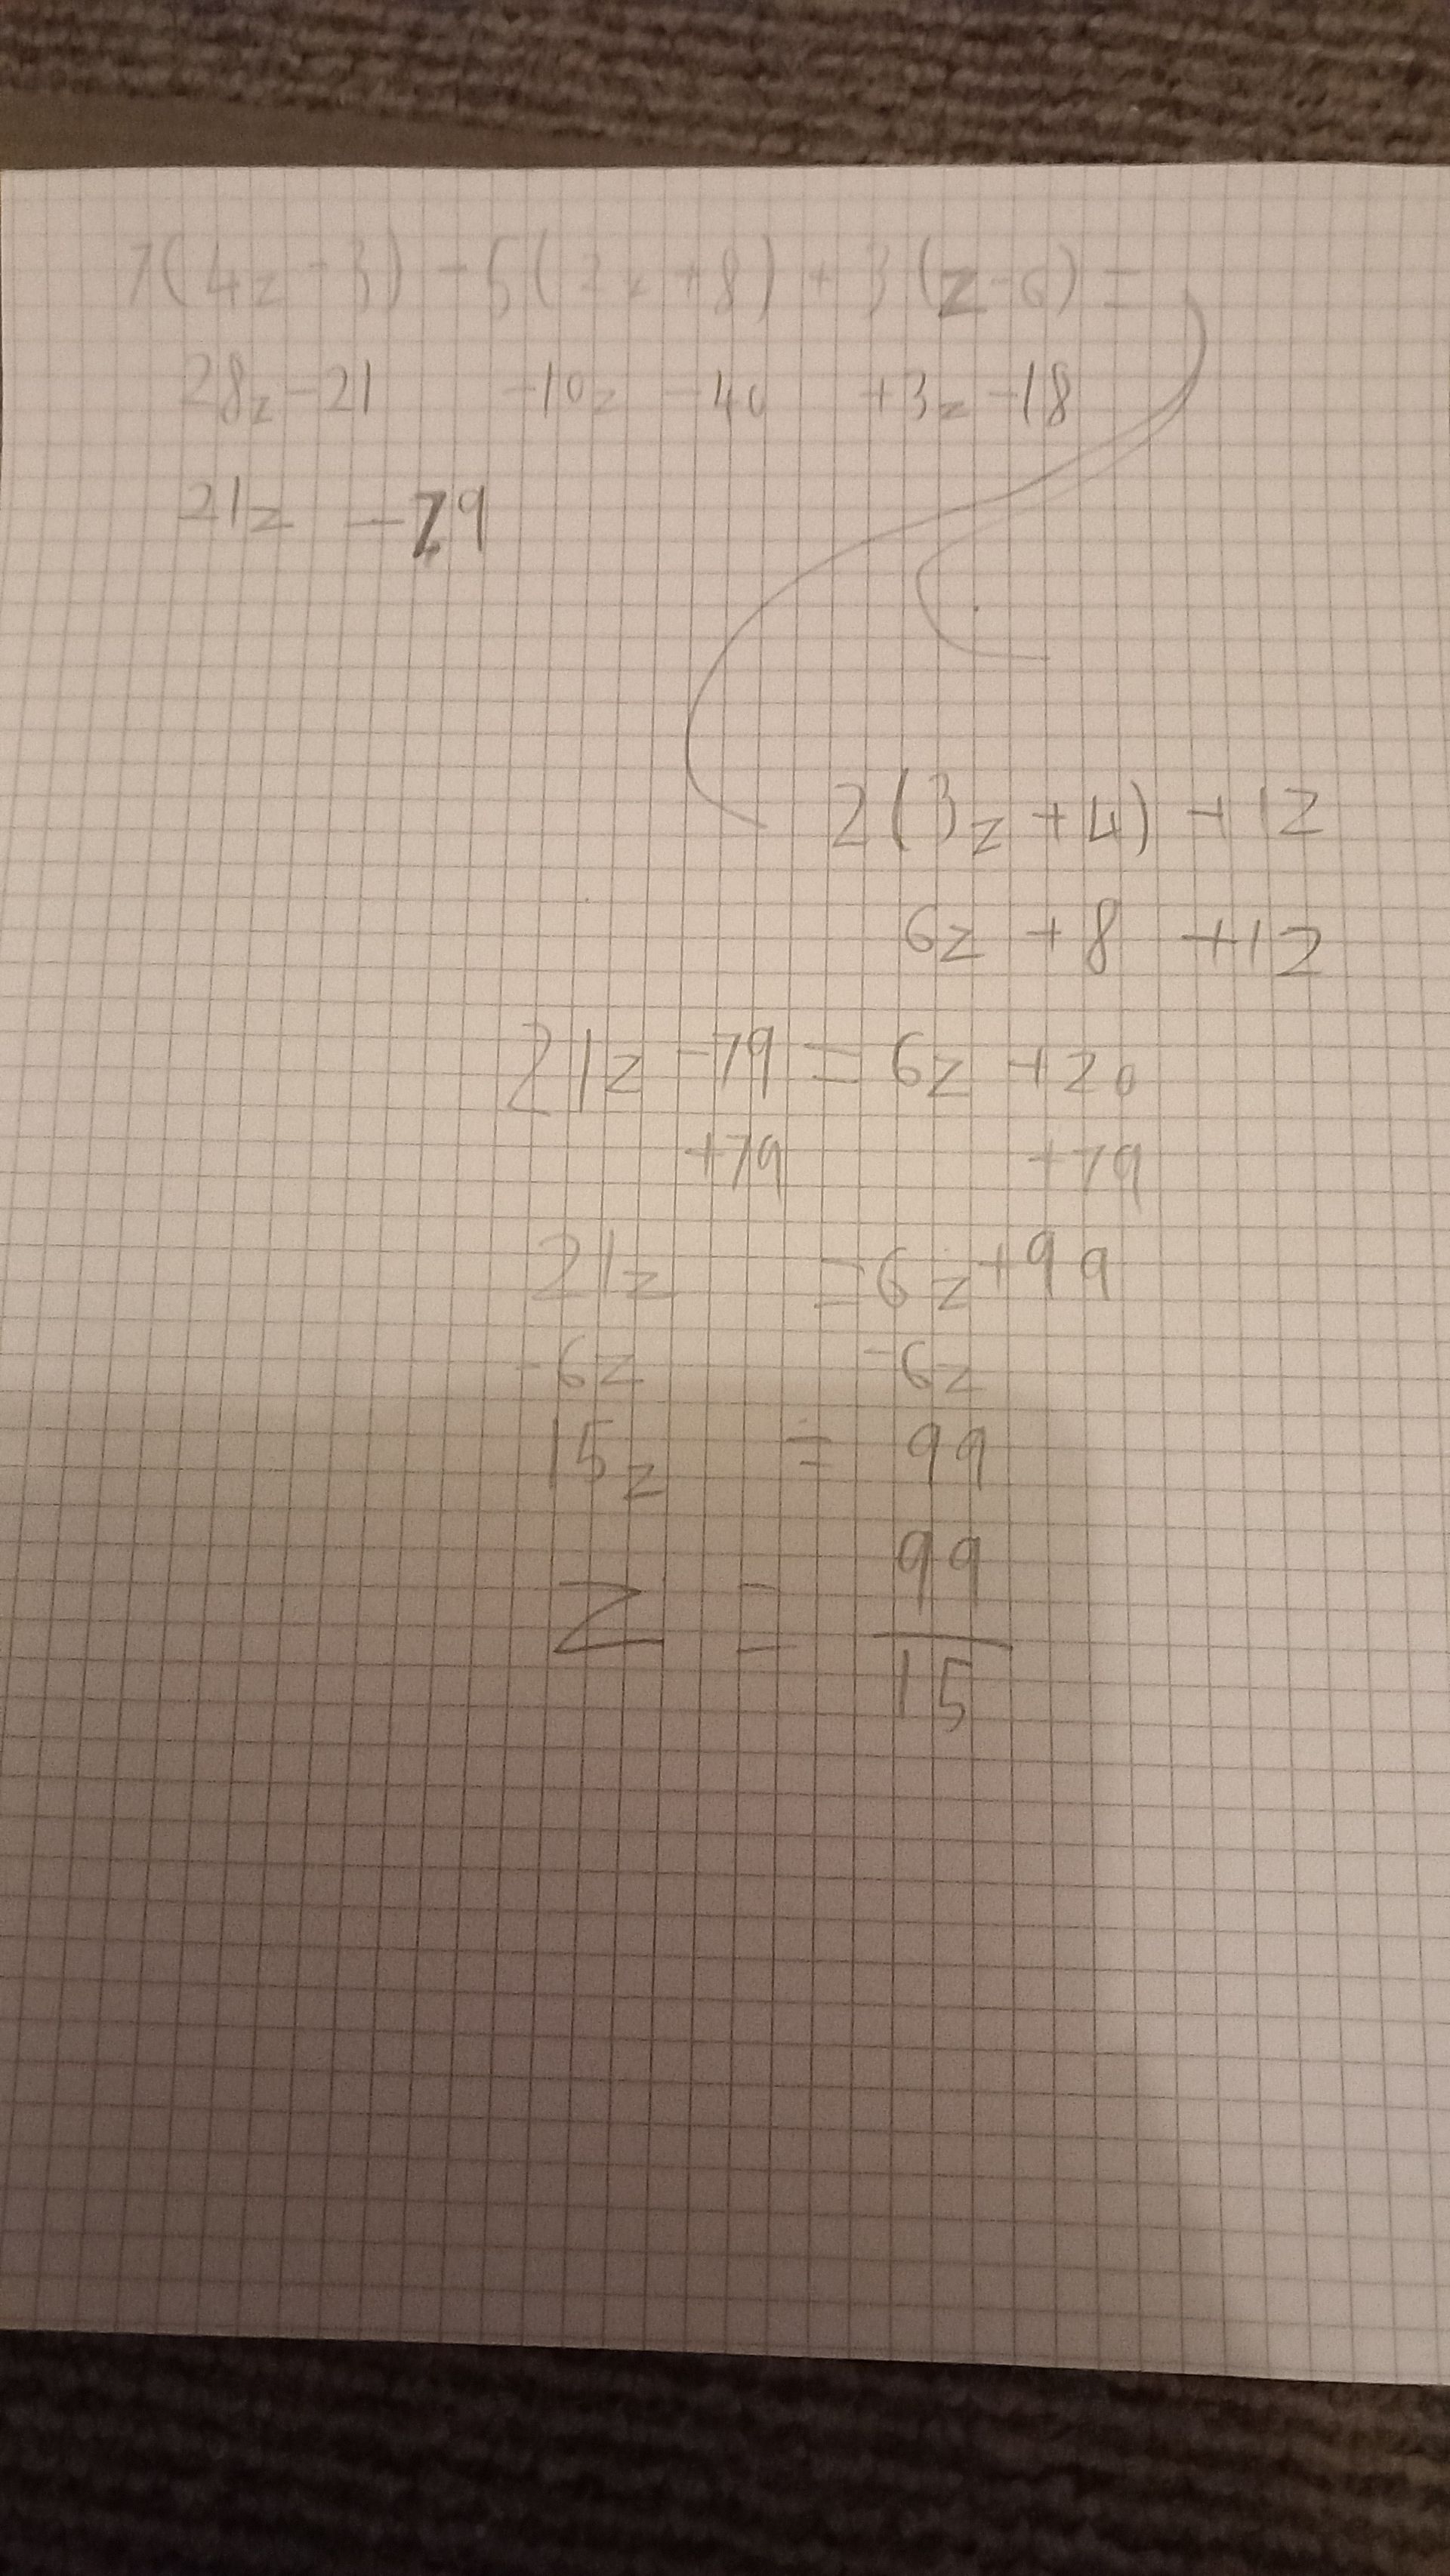 7(4z-3)-5(2z+8)+3(z-6)=
28z-21 -10z -40 +3z-18
21z -79
2(3z+4)+12
6z +8 +12
21z-79=6z+20
+79 +79
21z =6z+99
-6z -6z
15z = 99
z = 99/15